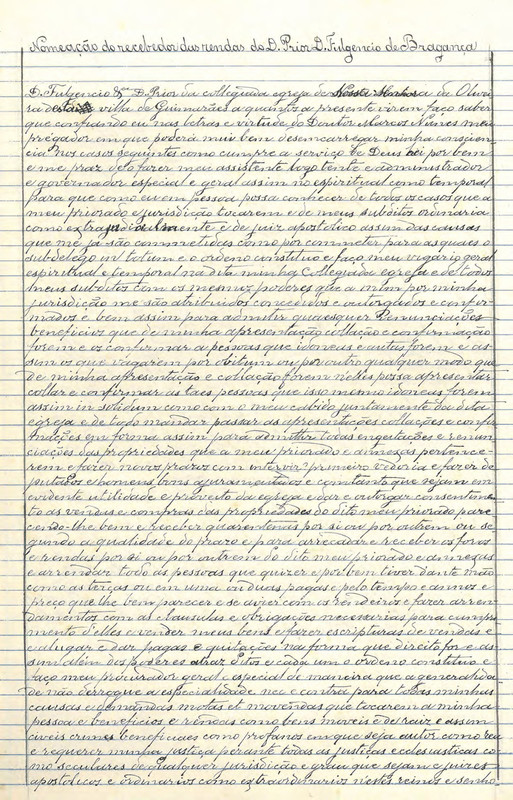 Nomeação do recebedor das rendas do D. Prior D. Fulgencio de Bragança
D. Fulgencio &ª D. Prior da collegiada egreja de Nossa Senhora de Olivei
ra desta villa de Guimarães a quantos a presente virem faço saber
que confiando eu nas letras e virtude do Doutor Marcos Nunes meu
prégador em que poderá mui bem desencarregar minha conscien
cia nos casos seguintes como cumpre a serviço de Deus hei por bem
e me praz de o fazer meu assistente logo tente e administrador
e governador especial e geral assim no espiritual como temporal
para que como eu em pessoa possa conhecer de todos os casos que a
meu priorado e jurisdicção tocarem e de meus subditos ordinaria
como extrajudicialmente e de juiz apostolico assim das causas
que me já são commetidas como por commeter para as quaes o
subdelego in totum e o ordeno constituo e faço meu vigario geral
espiritual e temporal na dita minha Collegiada egreja e de todos
meus subditos com os mesmos poderes que a mim por minha
jurisdicção me são atribuidos concedidos e outorgados e confir
mados e bem assim para admitir quaesquer renunciações
beneficios que de minha apresentação collação e confirmação
forem e os confirmar a pessoas que idoneas e autas forem e as
sim os que vagarem por obitum ou por outro qualquer modo que
de minha apresentação e collação forem n'elles possa apresentar
collar e confirmar as taes pessoas que isso mesmo idoneas forem
assim in solidum como com o meu cabido juntamente da dita
egreja e de todo mandar passar as apresentações collações e confir
mações em forma assim para admitir todas engeitações e renun
ciações das propriedades que a meu priorado e annexas pertence
rem e fazer novos prazos com intervir? primeiro vedoria e fazer de
putados e homens bons ajuramentados e comtanto que sejam em
evidente utilidade e proveito da egreja e dar e outorgar consentimen
to as vendas e compras das propriedades do dito meu priorado pare
cendo-lhe bem e receber quarentenas por si ou por outrem ou se
gundo a qualidade do prazo e para arrecadar e receber os foros
e rendas por si ou por outrem do dito meu priorado e annexas
e arrendar todo as pessoas que quizer e por bem tiver dante mão
como as terças ou em uma ou duas pagas e pelo tempo e annos e
preço que lhe bem parecer e se avier com os rendeiros e fazer arren
damentos com as clausulas e obrigações necessarias para cumpri
mento d'elles e vender meus bens e fazer escripturas de vendas e
e alugar e dar pagas e quitações na forma que direito for e as
sim além dos poderes atraz ditos e cada um o ordeno constituo e
faço meu procurador geral e especial de maneira que a generalida
de não derrogue a especialidade nec e contra para todas minhas
causas e demandas motas et movendas que tocarem a minha
pessoa e beneficios e rendas como bens moveis e de raiz e assim
civeis crimes beneficiaes como profanos em que seja autor como reu
e requerer minha justiça perante todas as justiças ecclesiasticas co
mo seculares de qualquer jurisdicção e grau que sejam e juizes
apostolicos e ordinarios como extraordinarios n'estes reinos e senho